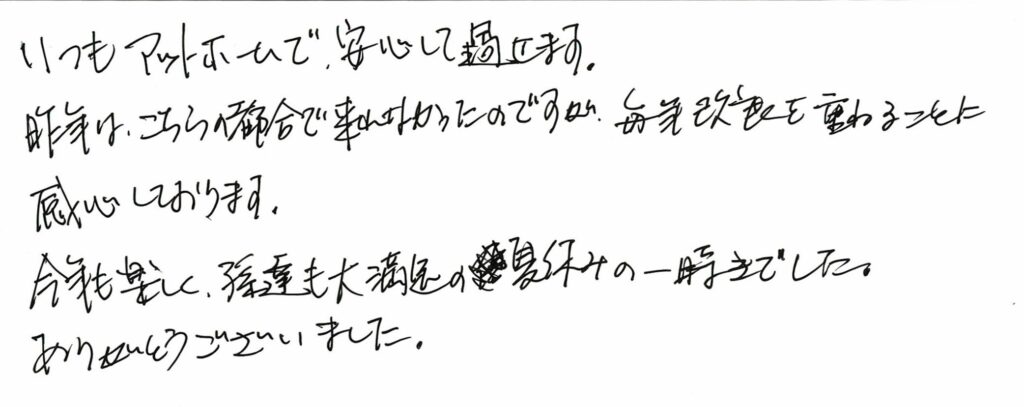 いつもアットホームで、安心して過ごせます。
昨年は、こちらの都合で来れなかったのですが、毎年改良を重ねることに
感心しております。
今年も楽しく、孫達も大満足の夏休みの一時きでした。
ありがとうございました。